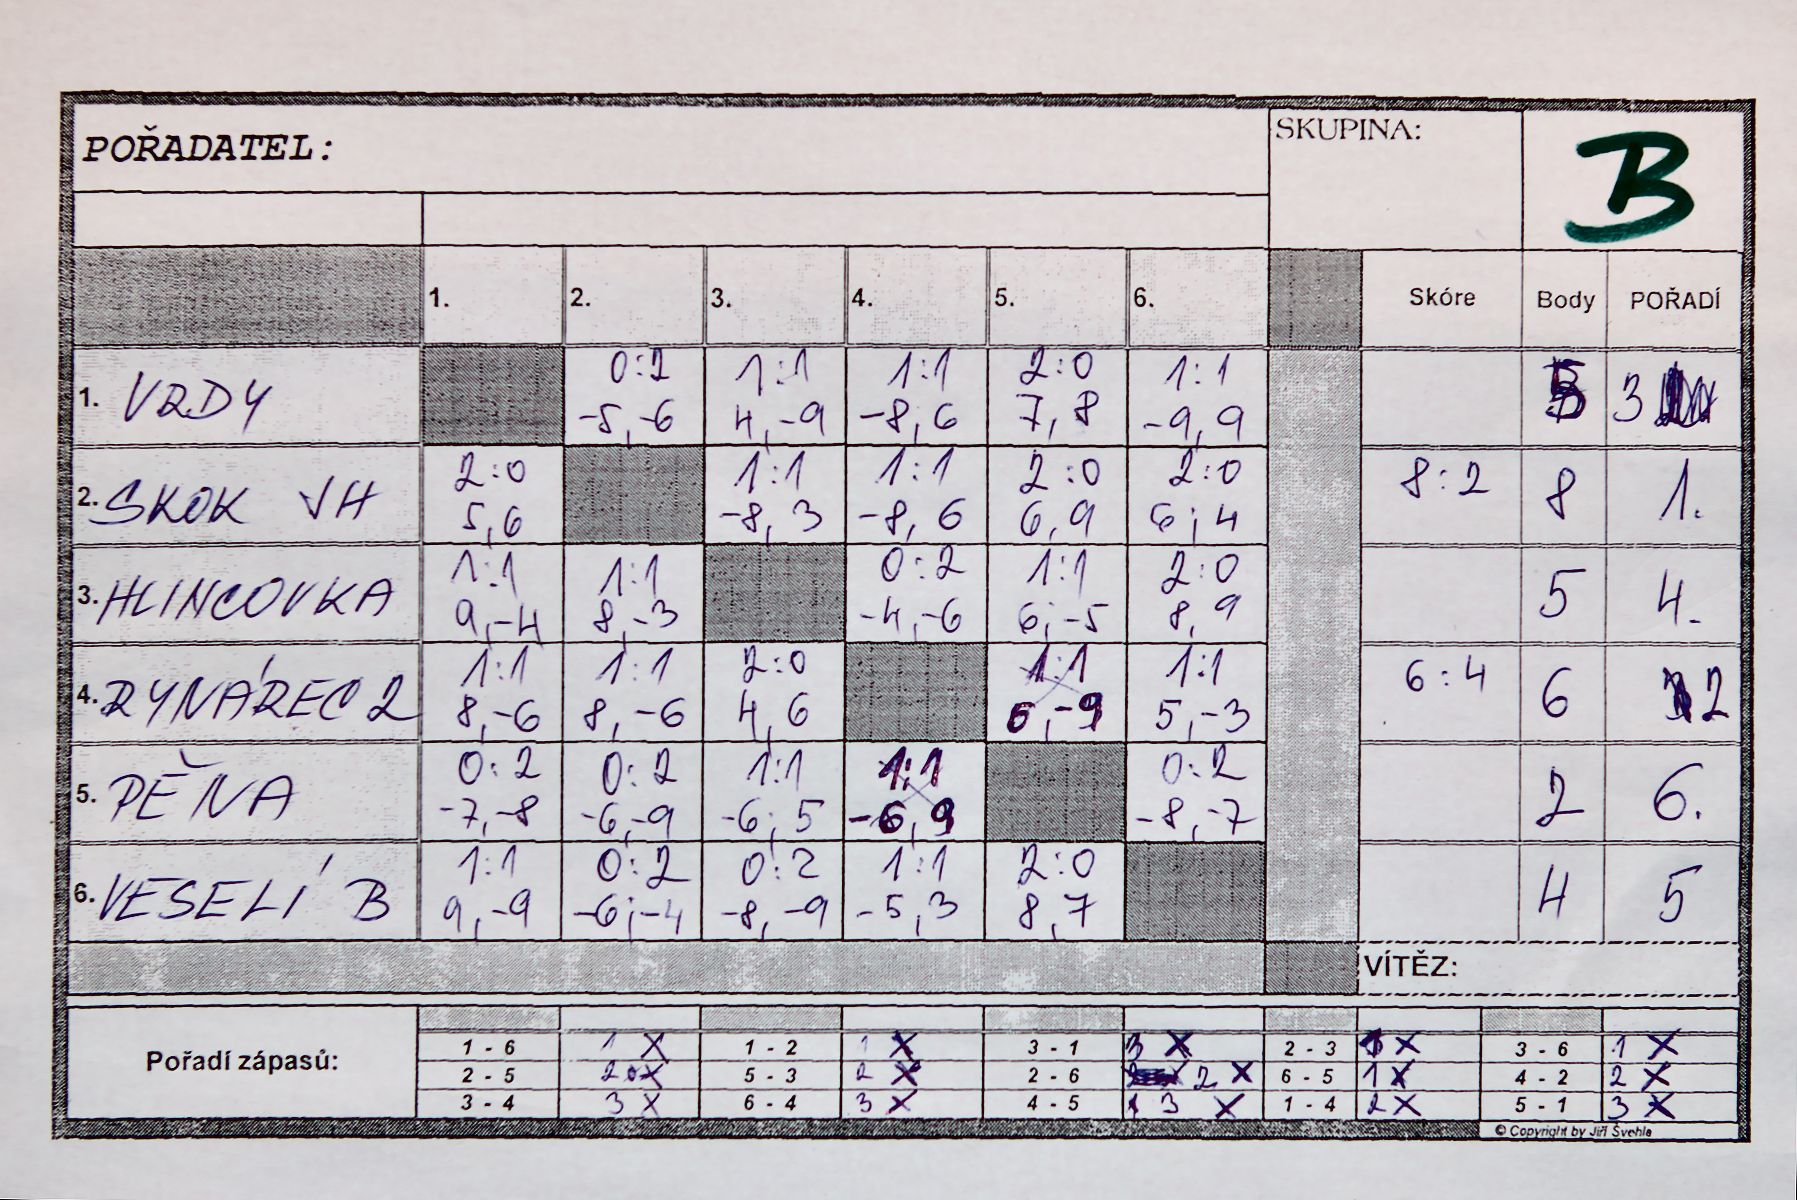 POŘADATEL:
SKUPINA:
B
1. 2. 3. 4. 5. 6. Skóre Body POŘADÍ
1. VRDY 0:2 1:1 1:1 2:0 1:1
-5,-6 4,-9 -8,6 7,8 -9,9 5 3
2. SKOK VH 2:0 1:1 1:1 2:0 2:0 8:2 8 1.
5,6 -8,3 -8,6 6,9 6;4
3. HLINCOVKA 1:1 1:1 0:2 1:1 2:0 5 4.
9,-4 8,-3 -4,-6 6;-5 8,9
4. RYNÁREC 2 1:1 1:1 2:0 1:1 1:1 6:4 6 2
8,-6 8,-6 4,6 6,-9 5,-3
5. PĚNA 0:2 0:2 1:1 1:1 0:2 2 6.
-7,-8 -6,-9 -6;5 -6,9 -8,-7
6. VESELÍ B 1:1 0:2 0:2 1:1 2:0 4 5
9,-9 -6;-4 -8,-9 -5,3 8,7
VÍTĚZ:
Pořadí zápasů:
1 - 6 1 X 1 - 2 1 X 3 - 1 3 X 2 - 3 X 3 - 6 1 X
2 - 5 2 X 5 - 3 2 X 2 - 6 2 X 6 - 5 1 X 4 - 2 2 X
3 - 4 3 X 6 - 4 3 X 4 - 5 3 X 1 - 4 2 X 5 - 1 3 X
© Copyright by Jiří Švehla